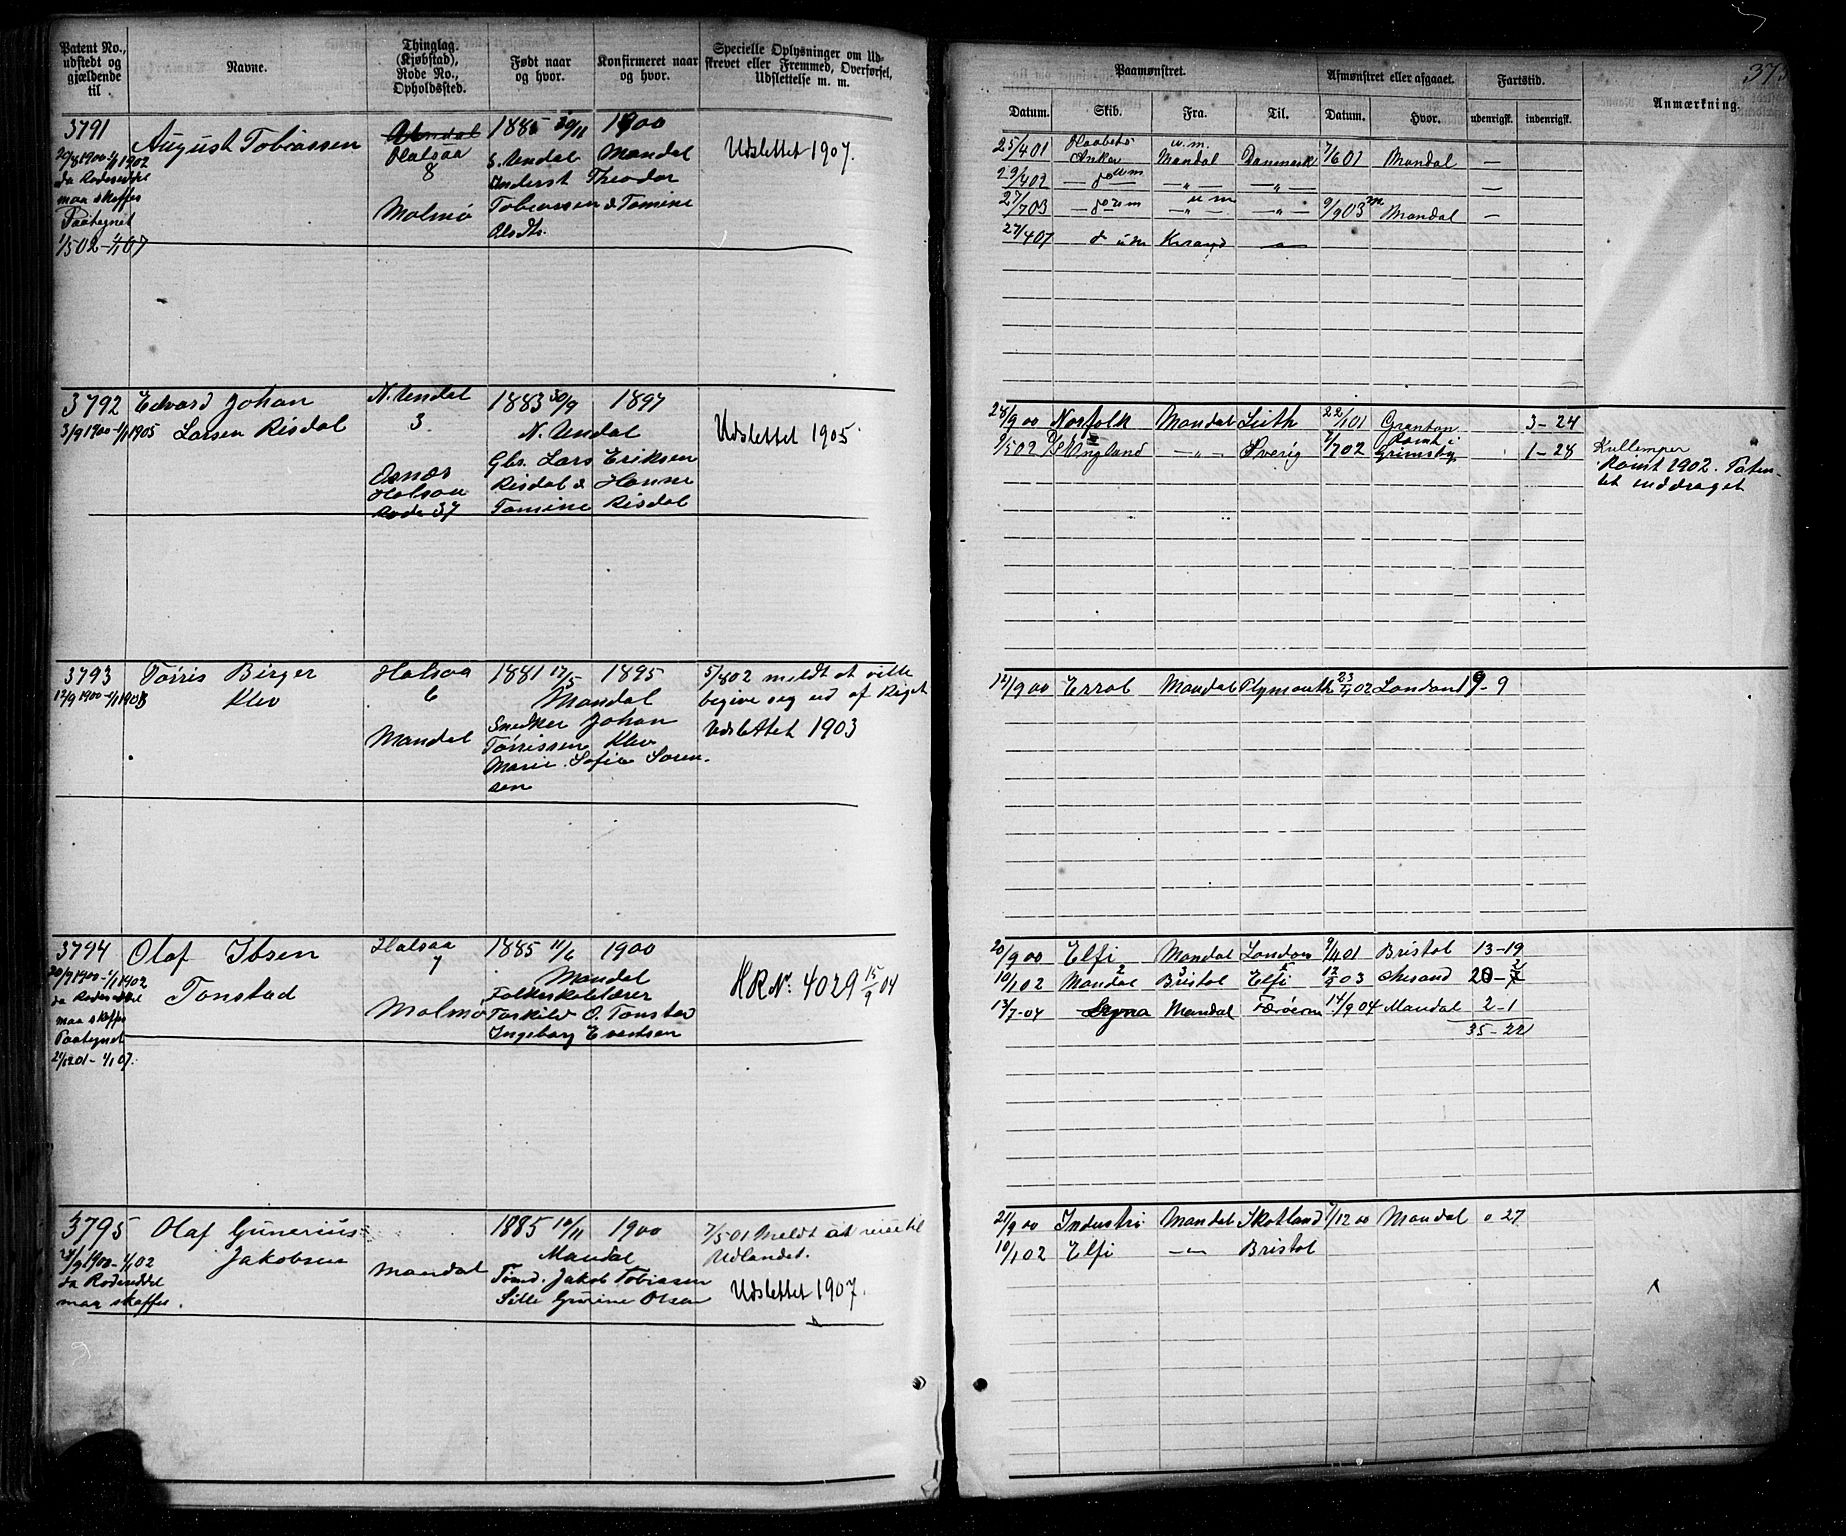 Patent No., udstedt og gjældende til
Navne.
Thinglag. (Kjøbstad), Rode No., Opholdssted.
Født naar og hvor.
Konfirmeret naar og hvor.
Specielle Oplysninger om Udskrevet eller Fremmed, Overførsel, Udslettelse m. m.
Paamønstret.
Afmønstret eller afgaaet.
Fartstid.
Anmærkning.
Datum.
Skib.
Fra.
Til.
Datum.
Hvor.
udenrigsk.
indenrigsk.
3791
29/8 1900-1/1 1902
da Rodeseddel
maa skaffes
Paategnet
1/5 02-1/1 07
August Tobiassen
Halsaa
8
Malmø
1885 30/11 1900
S. Undal Mandal
Theodor
Tobiassen & Tomine
Udslettet 1907.
25/4 01 Haabets Anker u.m. Mandal Danmark 7/6 01 Mandal —
29/4 02 — do um — „ — — „ — —
27/7 03 — do um — „ — u m — „ — 9/9 03 Mandal —
27/4 07
3792
3/9 1900-1/1 1905
Edvard Johan
Larsen Risdal
N. Undal
3.
Osnæs
Halsaa
Rode 37
1883 30/9 1897
N. Undal
Gbr. Lars Eriksen
Risdal & Hanne
Tomine Risdal
Udslettet 1905.
28/9 00 Norfolk Mandal Leith 22/1 01 Granton 3-24
9/5 02 D/S England — „ — Sverig 7/7 02 Rømt i Grimsby 1-28
Kullemper
Rømt 1902. Paten-
tet inddraget
3793
12/9 1900-1/1 1903
Tørris Birger
Klev
Halsaa
6
Mandal
1881 17/5 1895
Mandal
Snedker Johan
Tørrissen Klev
Marie Sofie Søren-
sen
5/8 02 meldt at ville
begive sig ud af Riget
Udslettet 1903
12/9 00 Errol Mandal Plymouth 23/1 02 London 9-9
3794
20/9 1900-1/1 1902
da Rodeseddel
maa skaffes
Paategnet
Olaf Ibsen
Tonstad
Halsaa
7
Malmø
1885 11/6 1900
Mandal
Folkeskolelærer
Torkild O. Tonstad
Ingeborg Evertsen
HR Nr: 4029 15/9 04
20/9 00 Elfi Mandal London 9/4 01 Bristol 13-19
10/1 02 Mandal Bristol Elfi 12/2 03 Chrsand
13/7-04 Mandal Færøerne 14/9 04 Mandal 2-1
35-22
3795
21/9 1900-1/1 02
da Rodeseddel
maa skaffes.
Olaf Gunerius
Jakobsen
Mandal
1885 10/11 1900
Mandal
Tømd. Jakob Tobiassen
Sille Gurine Olsen
7/5 01 Meldt at reise til
Udlandet.
Udslettet 1907.
21/9 00 Industri Mandal Skotland 7/12 00 Mandal 0 27
10/1 02 Elfi — „ — Bristol